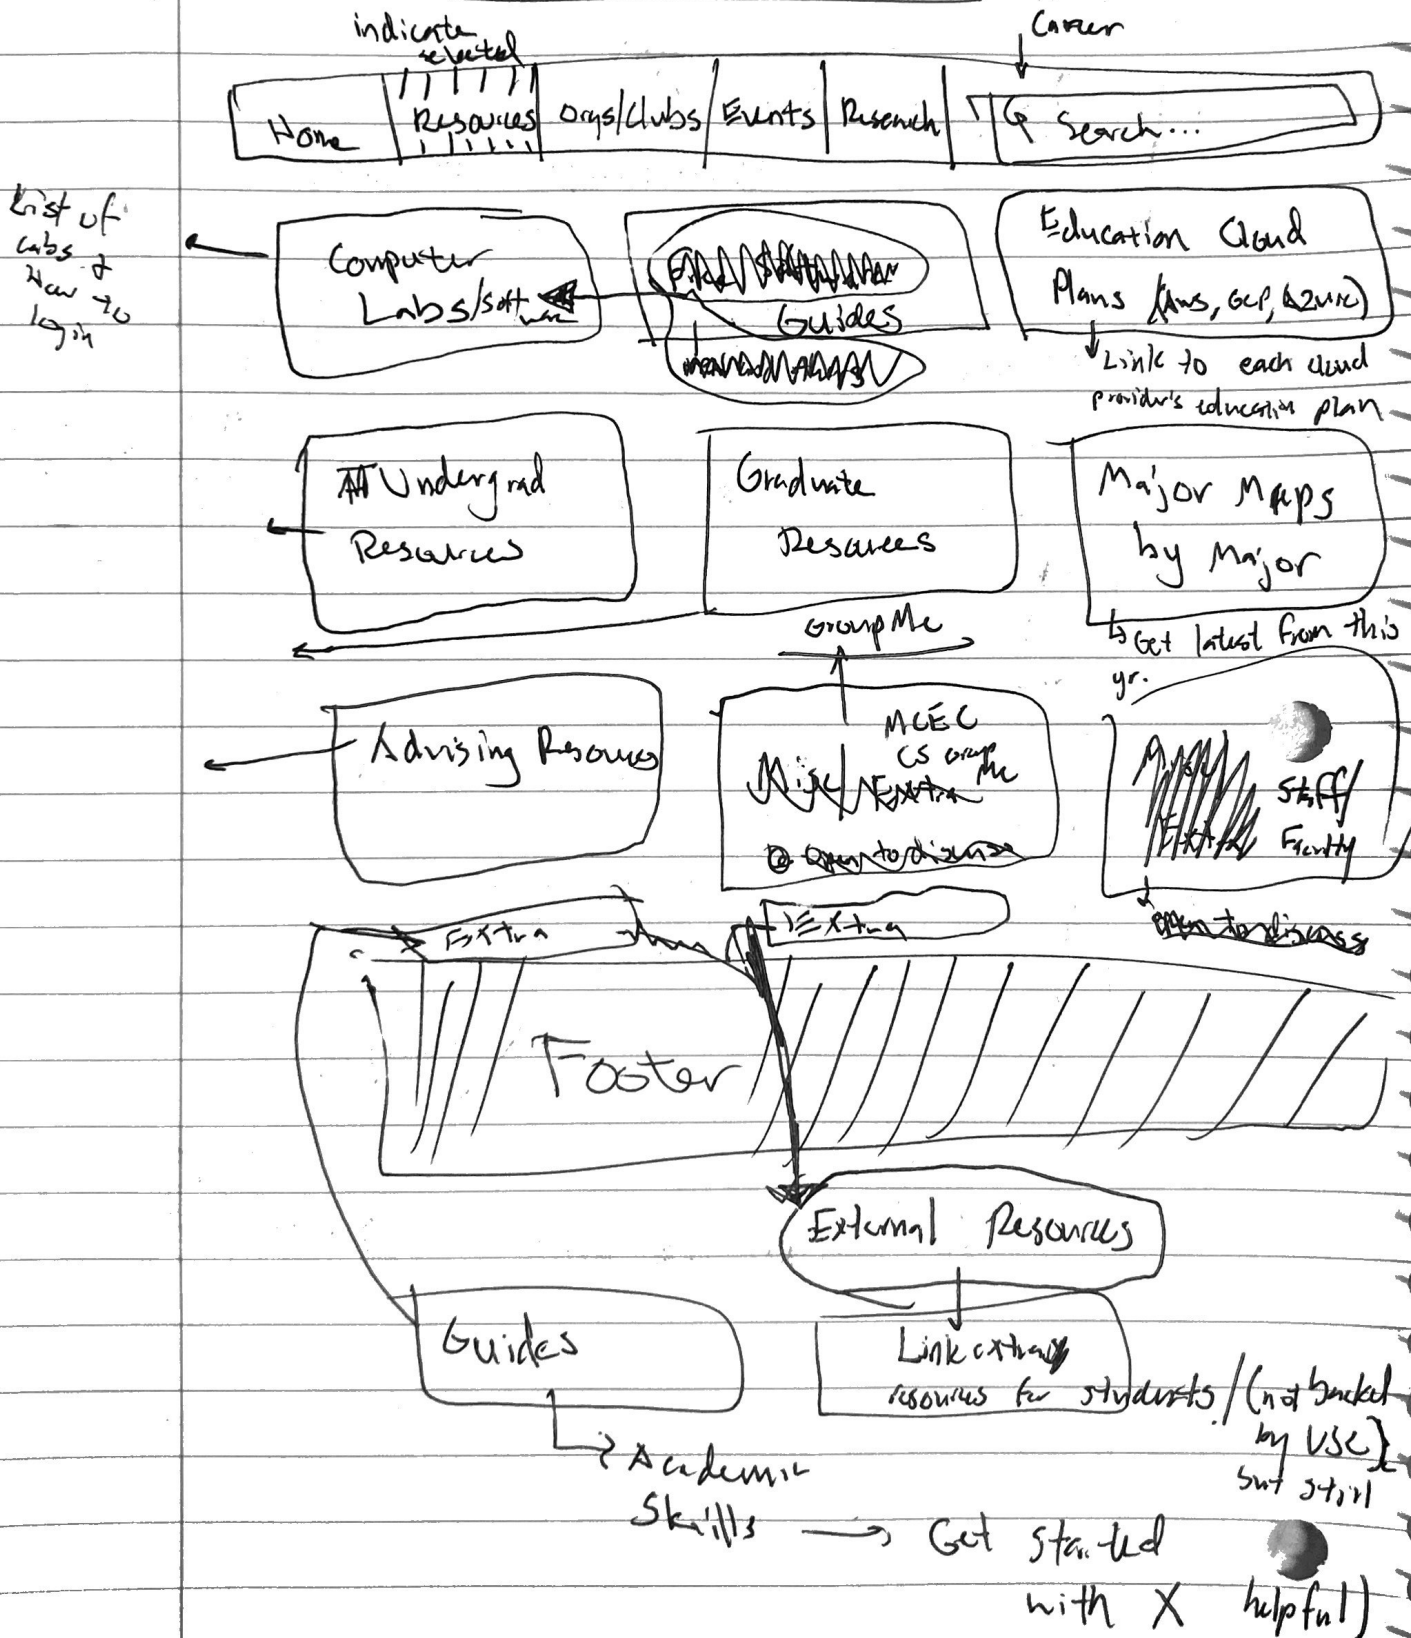 indicate
selected
Career
Home
Resources
Orgs/Clubs
Events
Research
Search...
List of
Labs &
How to
login
Computer
Labs/Software
Guides
Education Cloud
Plans (AWS, GCP, Azure)
Link to each cloud
provider's education plan
Undergrad
Resources
Graduate
Resources
Major Maps
by Major
Get latest from this
yr.
GroupMe
Advising Resources
MCEC
CS Group
Me
Misc/Extra
open to discuss
Misc/
Extra
Staff/
Faculty
open to discuss
Extra
Extra
Footer
External Resources
Guides
Link extra
resources for students/(not backed
by USC)
but still
helpful)
Academic
Skills → Get started
with X